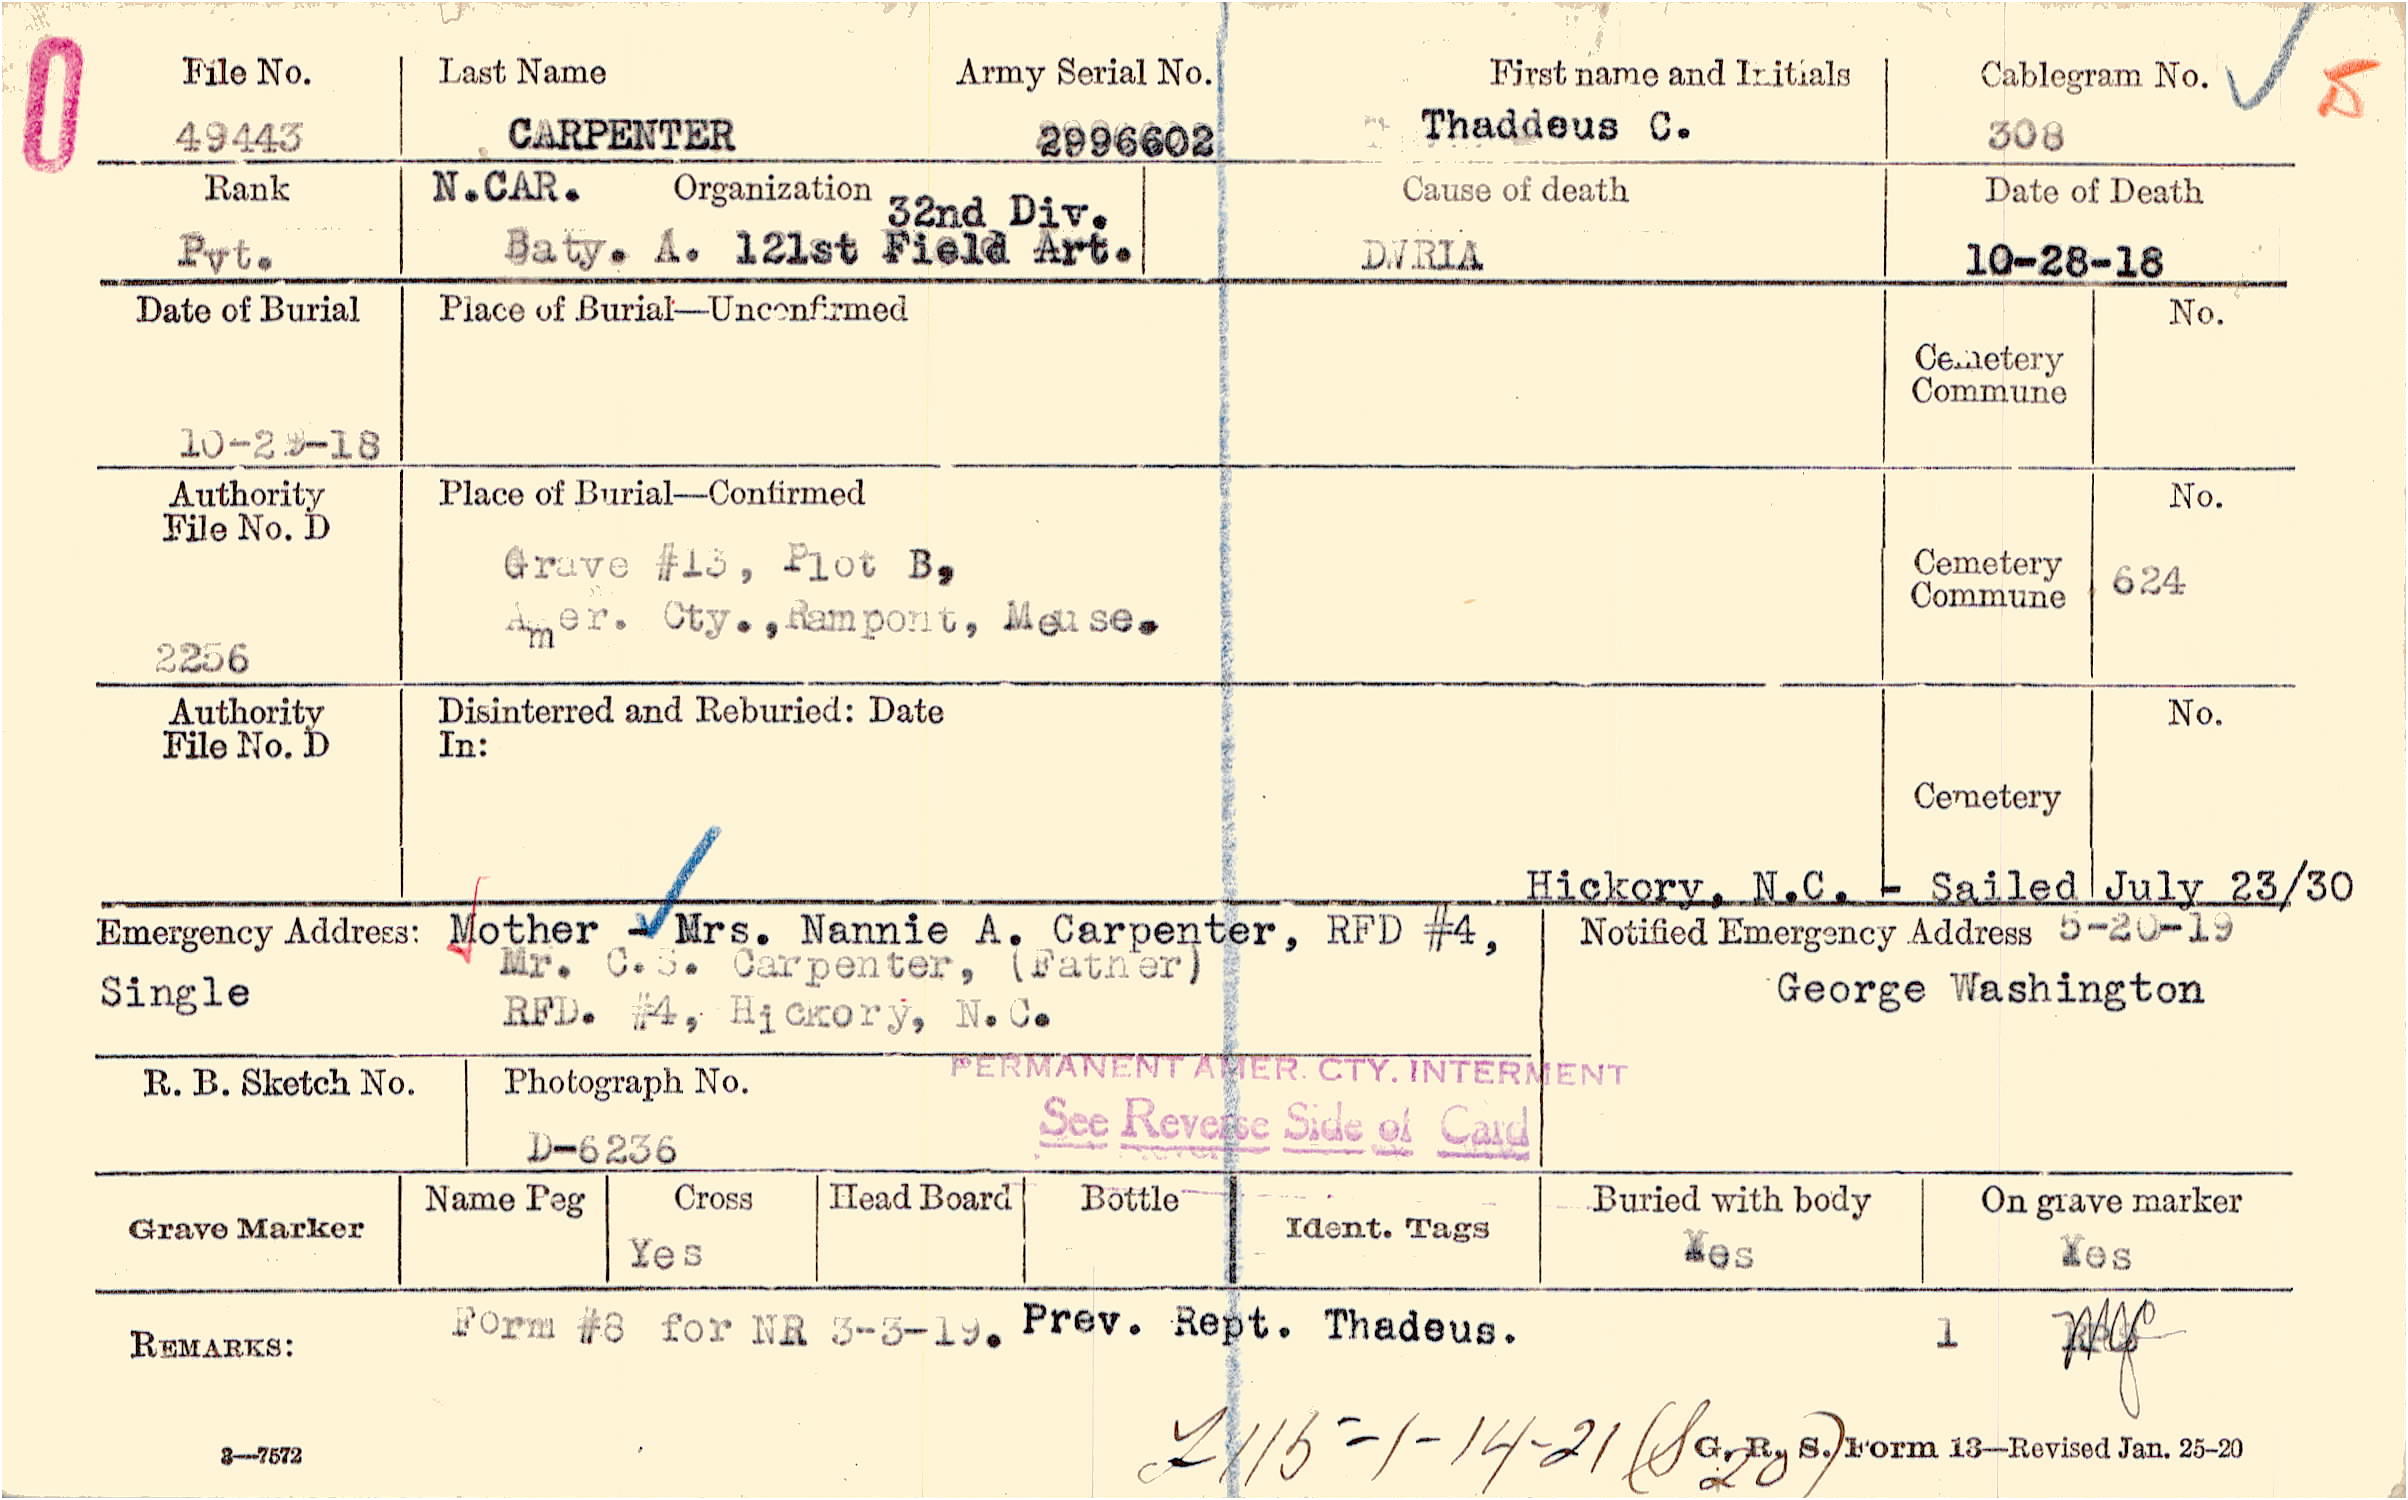 File No. Last Name Army Serial No. First name and Initials Cablegram No. 5
49443 CARPENTER 2996602 Thaddeus C. 308
Rank N.CAR. Organization Cause of death Date of Death
32nd Div.
Pvt. Baty. A. 121st Field Art. DWRIA 10-28-18
Date of Burial Place of Burial—Unconfirmed No.
Cemetery
Commune
10-29-18
Authority Place of Burial—Confirmed No.
File No. D
Grave #13, Plot B, Cemetery
Commune 624
Amer. Cty., Rampont, Meuse.
2256
Authority Disinterred and Reburied: Date No.
File No. D In:
Cemetery
Hickory, N.C. - Sailed July 23/30
Emergency Address: Mother - Mrs. Nannie A. Carpenter, RFD #4, Notified Emergency Address 5-20-19
Mr. C.S. Carpenter, (Father)
Single George Washington
RFD. #4, Hickory, N.C.
PERMANENT AMER. CTY. INTERMENT
R. B. Sketch No. Photograph No.
See Reverse Side of Card
D-6236
Grave Marker Name Peg Cross Head Board Bottle Ident. Tags Buried with body On grave marker
Yes Yes Yes
REMARKS: Form #8 for NR 3-3-19. Prev. Rept. Thadeus. 1
1-14-21
3—7572 G. R. S. Form 13—Revised Jan. 25-20